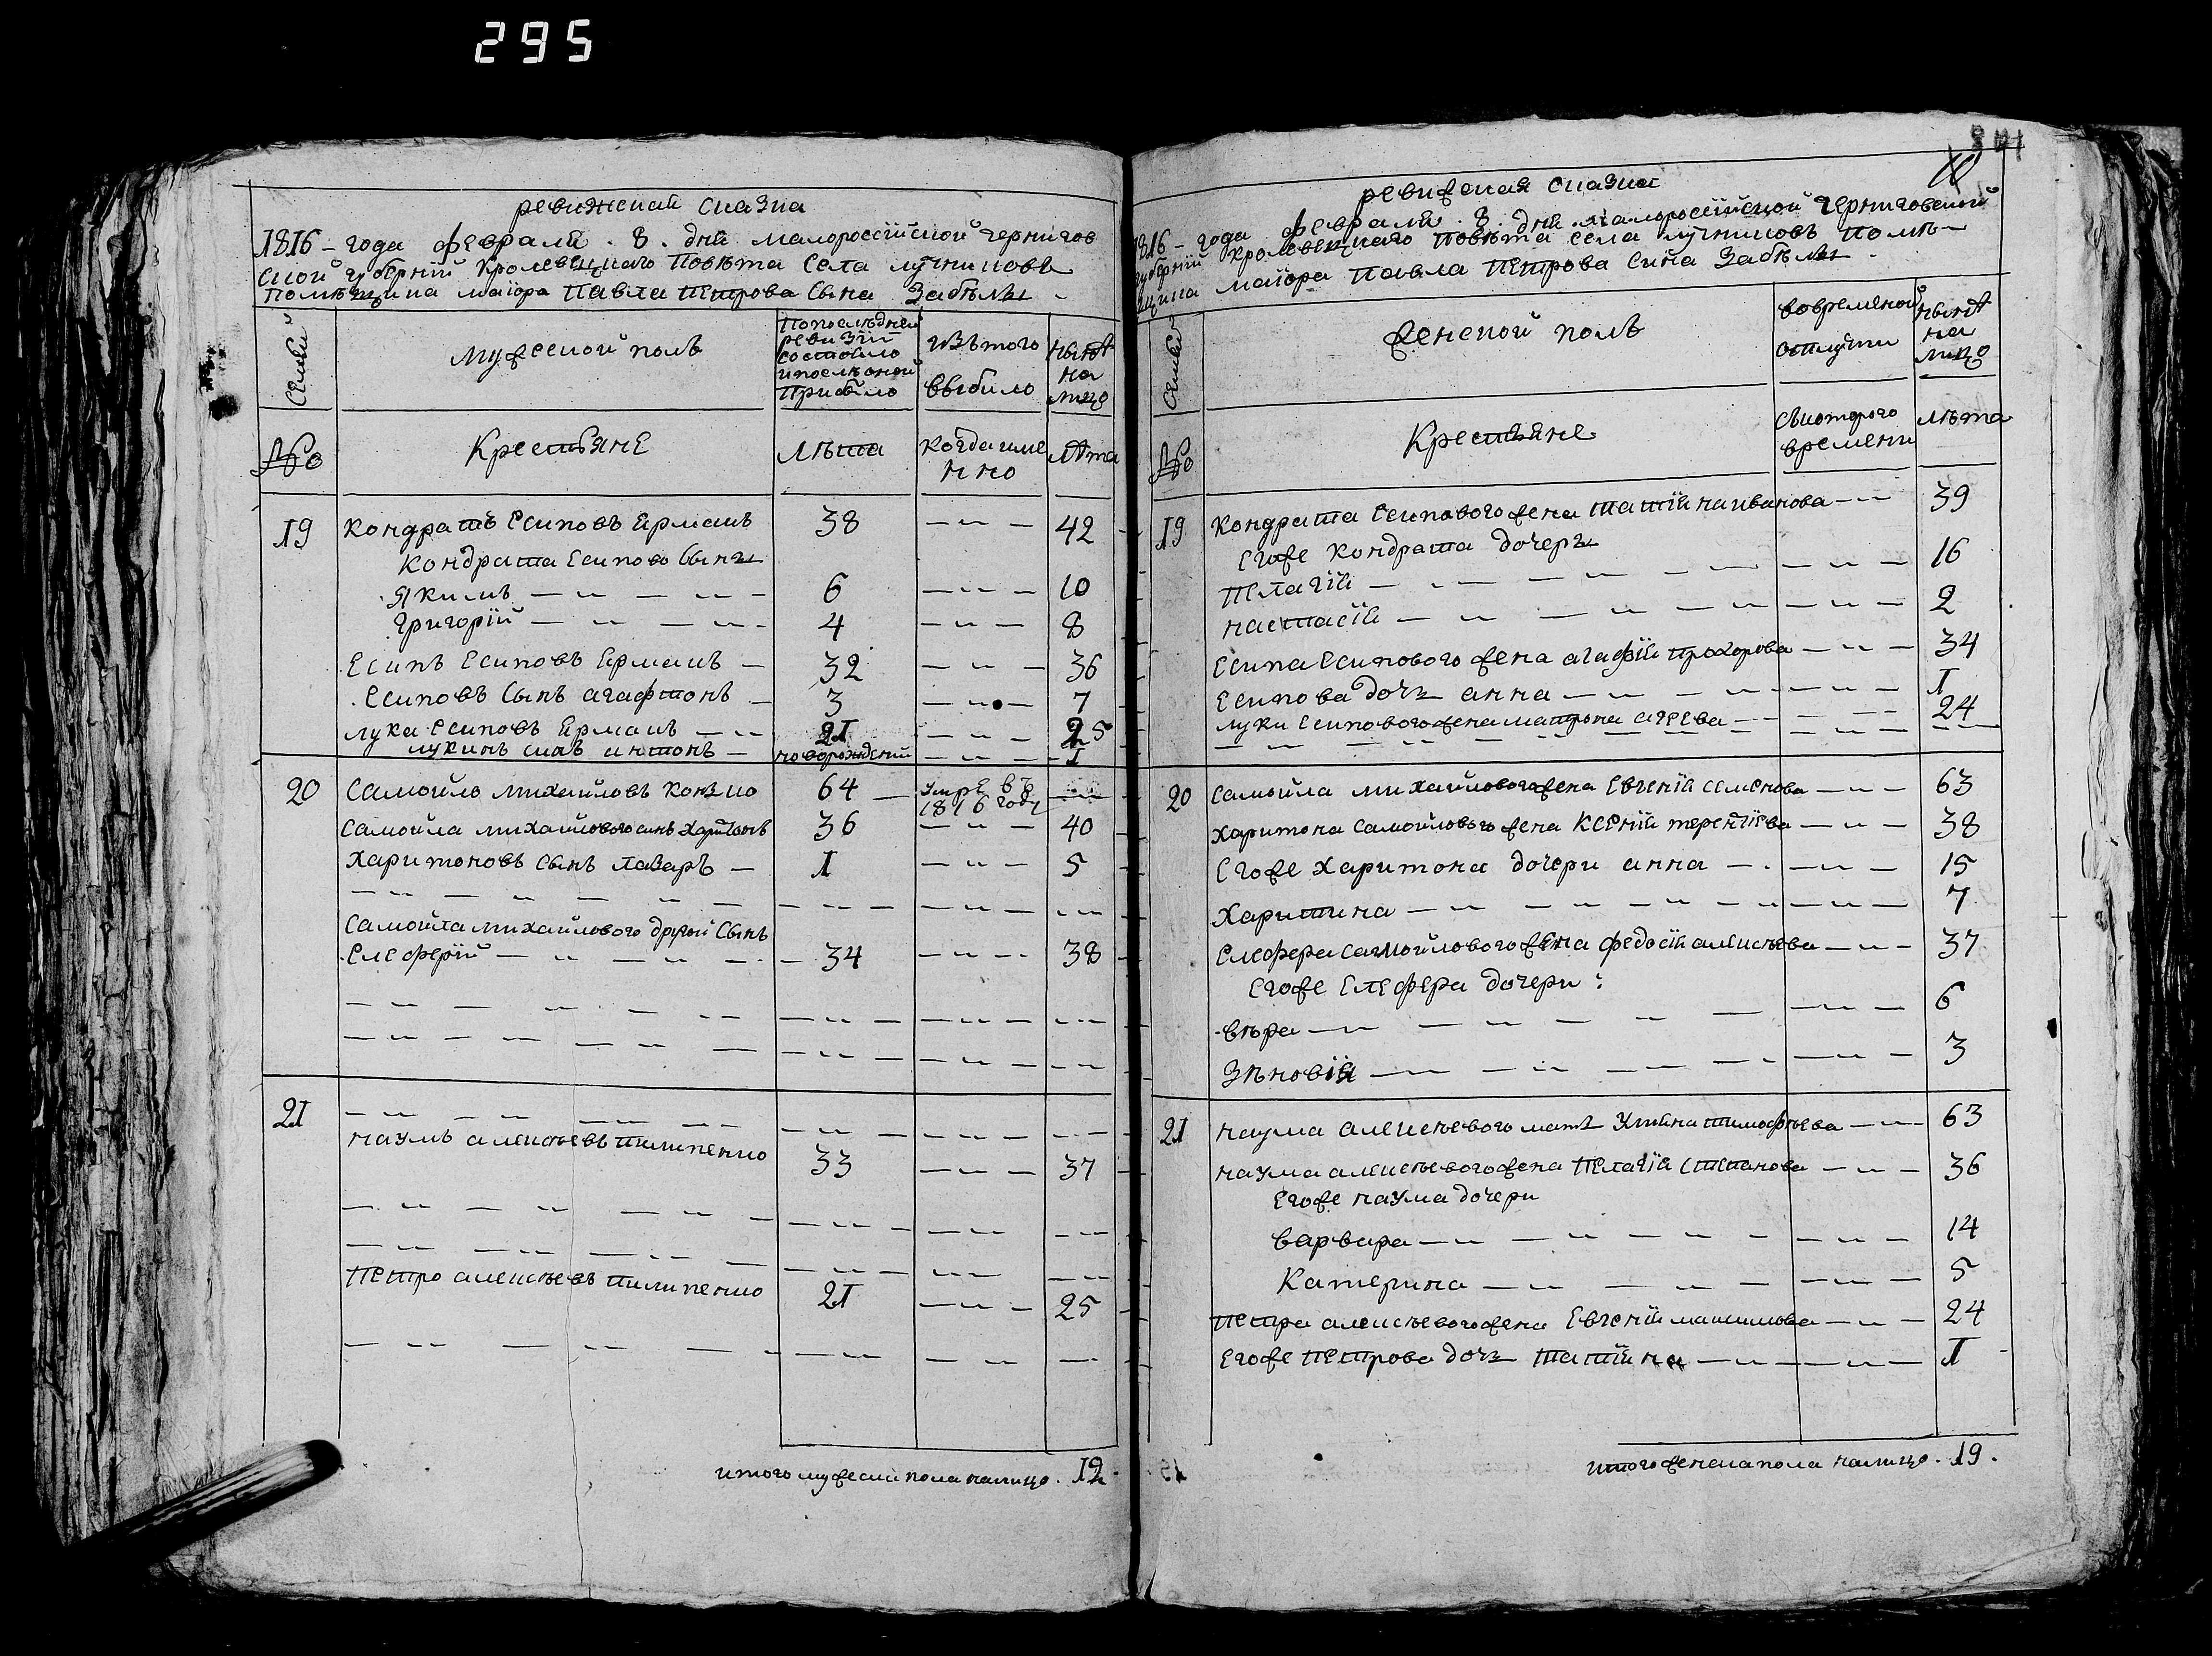 295
ревижская сказка
1816 - года февраля . 8 . дня малороссійской чернигов
ской губерніи Кролевецкаго Повѣта Села лучниковъ
Помѣщика маіора Павла Петрова Сына Забѣлы
Семьи
Мужеской полъ
Попослѣдней ревизіи состояло ипослѣоной Прибыло
изътого выбыло
нынѣ на лицо
№
Крестьяне
Лѣта
Когда имянно
Лѣта
19 Кондратъ Есиповъ Ермакъ 38 — „ — 42
Кондрата Есипово Сыны
Якимъ — „ — „ — 6 — „ — 10
Григорій — „ — „ - 4 — „ — 8
Есипъ Есиповъ Ермакъ — 32 — „ — 36
Есиповъ Сынъ агафтонъ — 3 — „ — 7
лука Есиповъ Ермакъ — „ 21 — „ — 25
лукинъ синъ антонъ — новорожденій — „ — 1
20 Самойло михайловъ Козко 64 — Умре въ 1816 году — „ —
Самойла михайлового синъ Харитонъ 36 — „ — 40
Харитоновъ Сынъ лазаръ — 1 — „ — 5
Самойла михайлового другой Сынъ
Елеферій — „ — „ — 34 — „ — 38
21
наумъ алексѣевъ пилипенко 33 — „ — 37
Петро алексѣевъ пилипенко 21 — „ — 25
итого мужеска пола налицо . 12 .
ревижская сказка
1816 - года февраля . 8 . дня малороссійской черниговской
губерніи Кролевецкаго Повѣта села лучниковъ Помѣ-
щика маіора Павла Петрова Сина Забѣлы
Семьи
женской полъ
вовременой отлучки
нынѣ на лицо
№
Крестьяне
Скоторого времени
лѣта
19 Кондрата Есипового жена татіяна иванова — „ 39
Егоже Кондрата дочеры
Пелагія — „ — „ — „ — 16
настасія — „ — „ — „ — 2
Есипа Есипового жена агафія прохорова — „ — 34
Есипова дочъ анна — „ — „ — 1
луки Есипового жена матрона агеева — — 24
20 Самойла михайлового жена Евгенія семенова — „ — 63
Харитона самойлового жена Ксенія терентіева — „ — 38
Егоже Харитона дочери анна — . — „ — 15
Харитина — „ — „ — „ — 7
Елефера самойлового жена федосія алексѣева — „ — 37
Егоже Елефера дочери :
вѣра — „ — „ — „ — 6
Зѣновія — „ — „ — „ — 3
21 наума алексѣевого мать Уляна тимофѣева — „ — 63
наума алексѣевого жена Пелагія Степанова — „ — 36
Егоже наума дочери
варвара — „ — „ — „ — 14
Катерина — „ — „ — „ — 5
Петра алексѣевого жена Евгенія максимова — „ — 24
Егоже Петрова дочъ татіяна — „ — „ — 1
итого женска пола налицо . 19 .